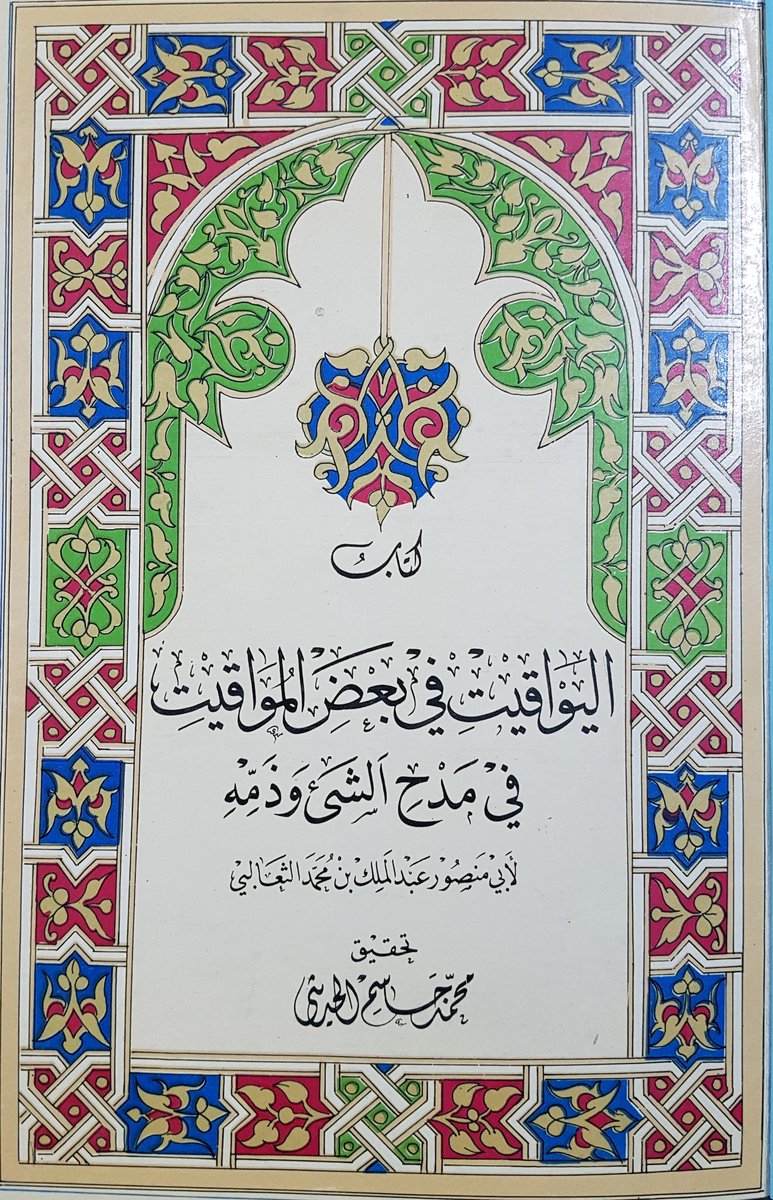 كتاب
اليواقيت في بعض المواقيت
في مدح الشئ وذمه
لأبي منصور عبد الملك بن محمد الثعالبي
تحقيق
محمد جاسم الحديثي